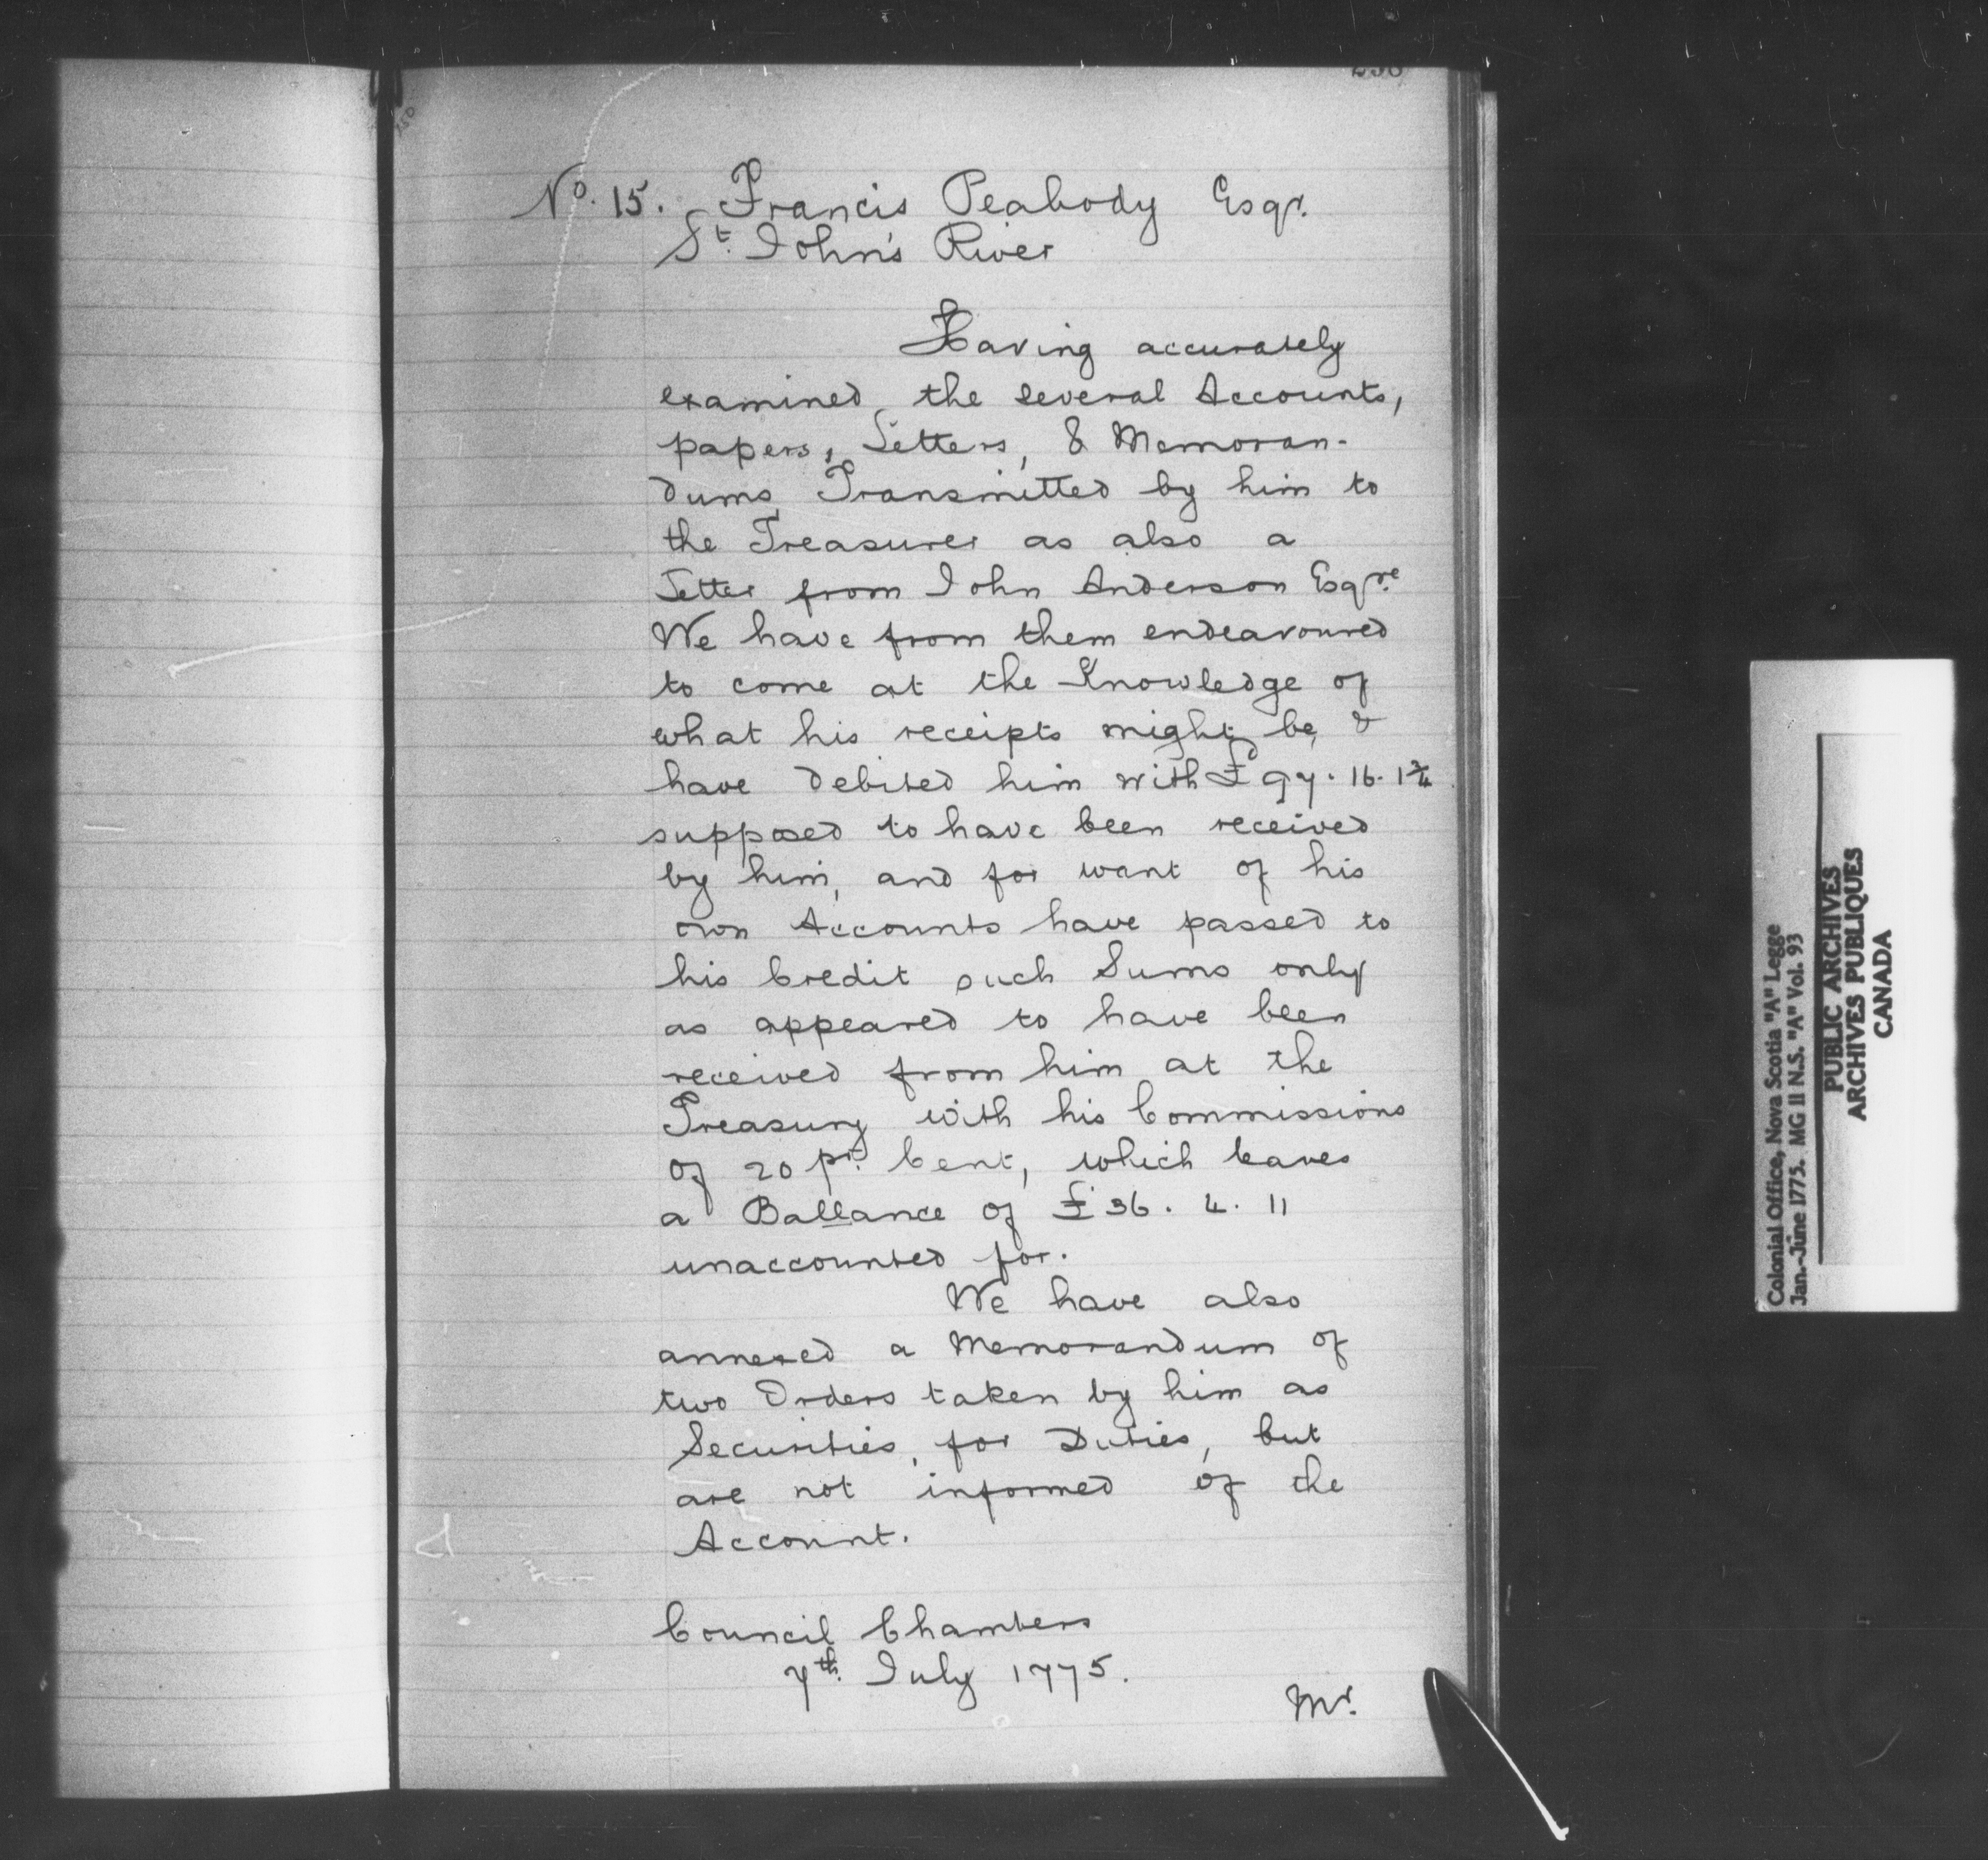 No. 15. Francis Peabody Esqr.
St. John's River
Having accurately
examined, the several Accounts,
papers, Letters, & Memoran-
dums, Transmitted by him to
the Treasurer as also a
Letter from John Anderson Esqre.
We have from them endeavoured
to come at the Knowledge of
what his receipts might be, &
have debited him with £97. 16. 1¾
supposed to have been received
by him, and for want of his
own Accounts have passed to
his Credit such Sums only
as appeared to have been
received from him at the
Treasury with his Commissions
of 20 pr. Cent, which leaves
a Ballance of £36. 4. 11
unaccounted for.
We have also
annexed a Memorandum of
two Orders taken by him as
Securities, for Duties, but
are not informed of the
Account.
Council Chambers
7th. July 1775.
Mr.
Colonial Office, Nova Scotia "A" Legge
Jan.-June 1775. MG 11 N.S. "A" Vol. 93
PUBLIC ARCHIVES
ARCHIVES PUBLIQUES
CANADA